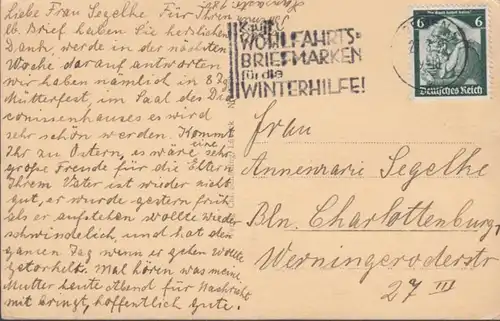 Liebe Frau Segelke Für Ihren
lb. Brief haben Sie herzlichen
Dank, werde in der nächsten
Woche darauf antworten
wir haben nämlich in 8 Tg.
Mütterfest, im Saal des Dia
conissenhauses es wird
sehr schön werden. Kommt
Ihr zu Ostern, es wäre eine sehr
große Freude für die Eltern
Ihrem Vater ist wieder nicht
gut, er wurde gestern früh
als er aufstehen wollte wieder
schwindelich, und hat den
ganzen Tag wenn er gehen wollte
getorkelt. Mal hören was meine
Mutter heute Abend für Nachricht
mit bringt, hoffentlich gute.
Kauft
WOHLFAHRTS-
BRIEFMARKEN
für die
WINTERHILFE!
6
6
Deutsches Reich
Frau
Annemarie Segelke
Bln. Charlottenburg 1
Werningeroderstr
27 III